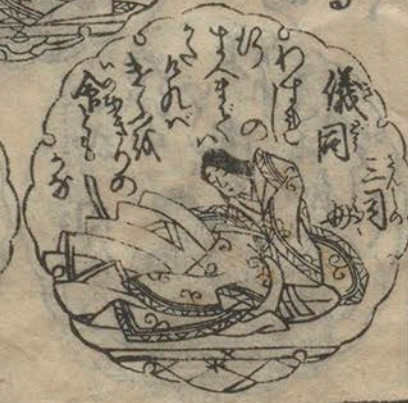 儀同
三司母
わすれじ
の
行
すへまでハ
かた
けれバ
けふを
かぎりの
命とも
がな